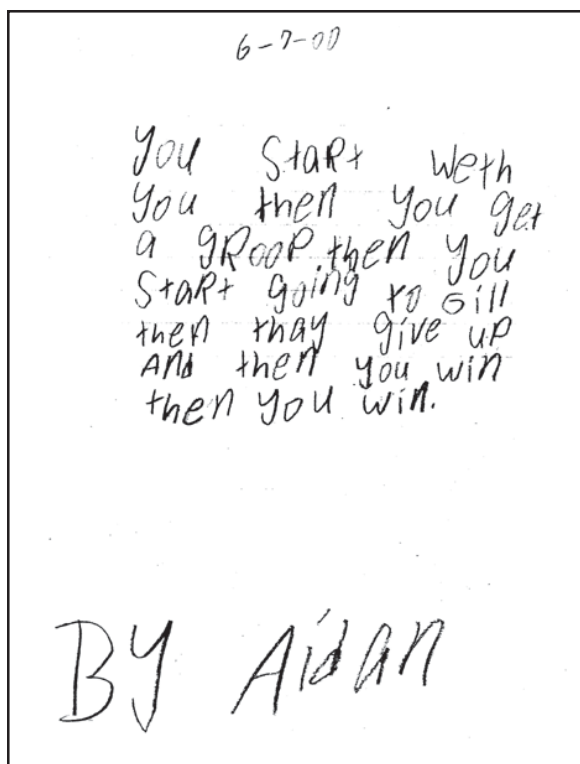 6-7-00
You StaRt weth
You then you get
a gRooP then you
StaRt going to Gill
then thay give uP
And then you win
then you win.
BY Aidan